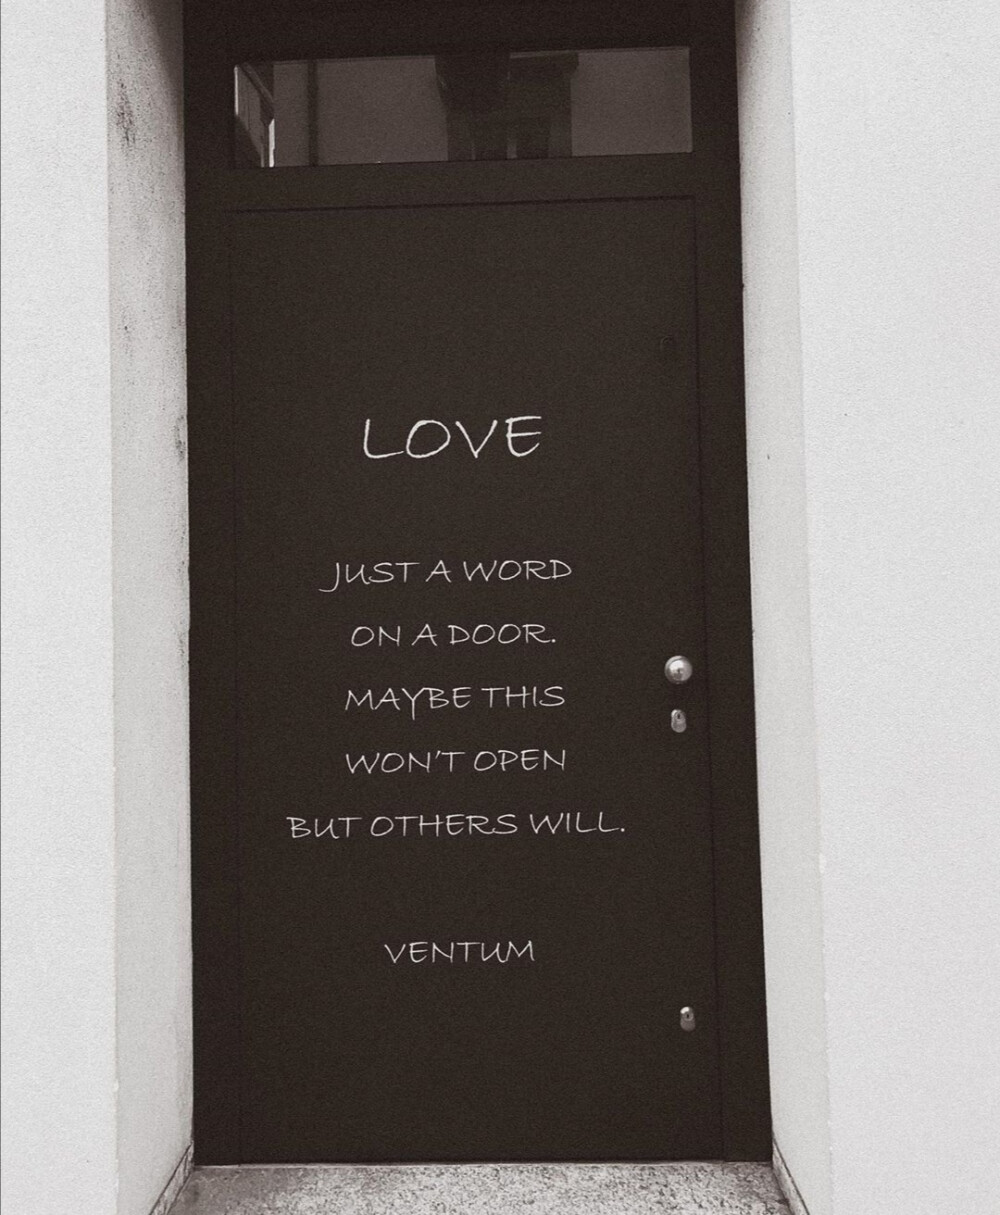 LOVE
JUST A WORD
ON A DOOR.
MAYBE THIS
WON'T OPEN
BUT OTHERS WILL.
VENTUM